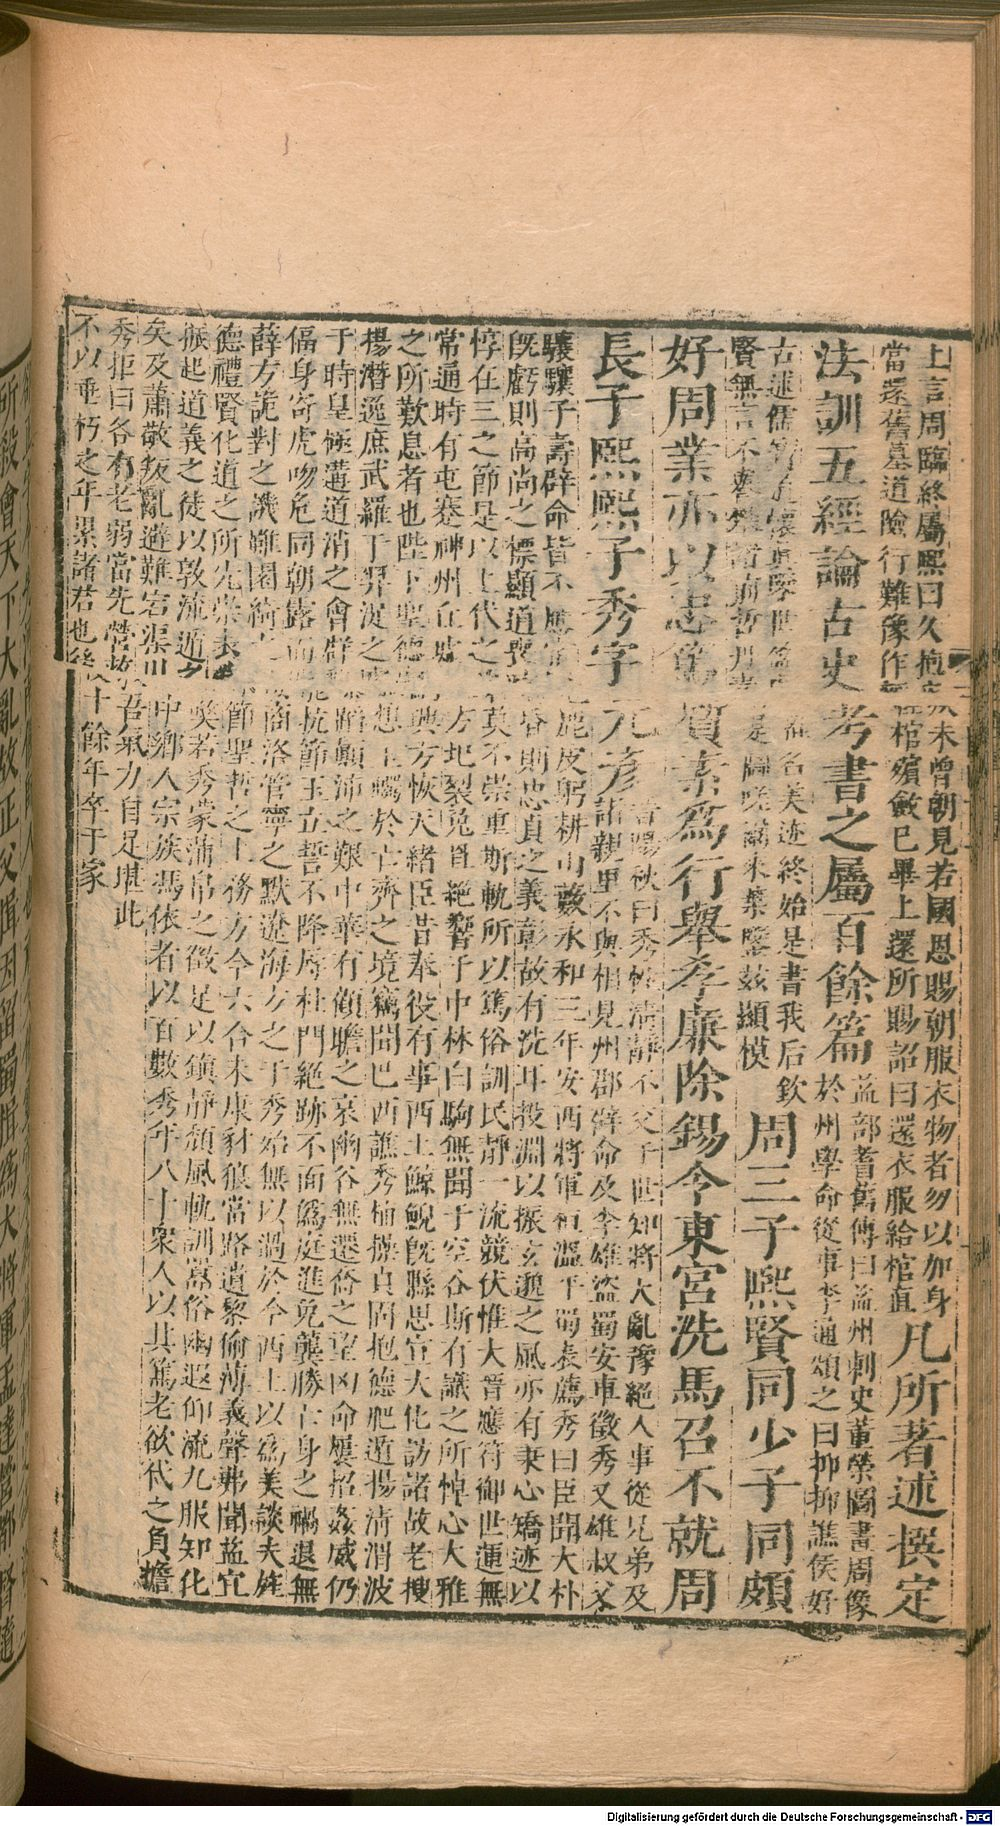 上言周臨終屬熙曰久抱疾未曾朝見若國恩賜朝服衣物者勿以加身
當還舊墓道險行難豫作輕棺殯斂已畢上還所賜詔曰還衣服給棺直
凡所著述撰定
法訓五經論古史考書之屬百餘篇
益部耆舊傳曰益州刺史董榮圖畫周像
於州學命從事李通頌之曰抑抑譙侯好
古述儒寶道懷真鑒世盈虛雅名美迹終始是書我后欽
賢無言不譽攀諸前哲丹青是圖嗟爾來葉鑒茲顯模
周三子熙賢同少子同頗
好周業亦以忠篤質素爲行舉孝廉除錫令東宮洗馬召不就周
長子熙熙子秀字元彥
晉陽秋曰秀性清靜不交于世知將大亂豫絕人事從兄弟及
諸親里不與相見州郡辟命及李雄盜蜀安車徵秀又雄叔父
驤驤子壽辟命皆不應常冠鹿皮躬耕山藪永和三年安西將軍桓溫平蜀表薦秀曰臣聞大朴
旣虧則高尚之標顯道喪時昏則忠貞之義彰故有洗耳投淵以振玄邈之風亦有秉心矯迹以
惇在三之節是以上代之君莫不崇重斯軌所以篤俗訓民靜一流競伏惟大晉應符御世運無
常通時有屯蹇神州丘墟三方圮裂兔罝絕響于中林白駒無聞于空谷斯有識之所悼心大雅
之所歎息者也陛下聖德嗣興方恢天緒臣昔奉役有事西土鯨鯢旣縣思宣大化訪諸故老搜
揚潛逸庶武羅于羿浞之墟想王蠋於亡齊之境竊聞巴西譙秀植操貞固抱德肥遁揚清渭波
于時皇極遘道消之會羣黎蹈顛沛之艱中華有顧瞻之哀幽谷無遷喬之望凶命屢招姦威仍
偪身寄虎吻危同朝露而能抗節玉立誓不降辱杜門絕跡不面僞庭進免龔勝亡身之禍退無
薛方詭對之譏雖園綺之棲商洛管寧之默遼海方之于秀殆無以過於今西土以爲美談夫旌
德禮賢化道之所先崇表殊節聖哲之上務方今六合未康豺狼當路遺黎偷薄義聲弗聞益宜
振起道義之徒以敦流遁之弊若秀蒙蒲帛之徵足以鎮靜頹風軌訓囂俗幽遐仰流九服知化
矣及蕭敬叛亂避難宕渠川中鄉人宗族馮依者以百數秀年八十衆人以其篤老欲代之負擔
秀拒曰各有老弱當先營救吾氣力自足堪此
不以垂朽之年累諸君也後十餘年卒于家
Digitalisierung gefördert durch die Deutsche Forschungsgemeinschaft - DFG